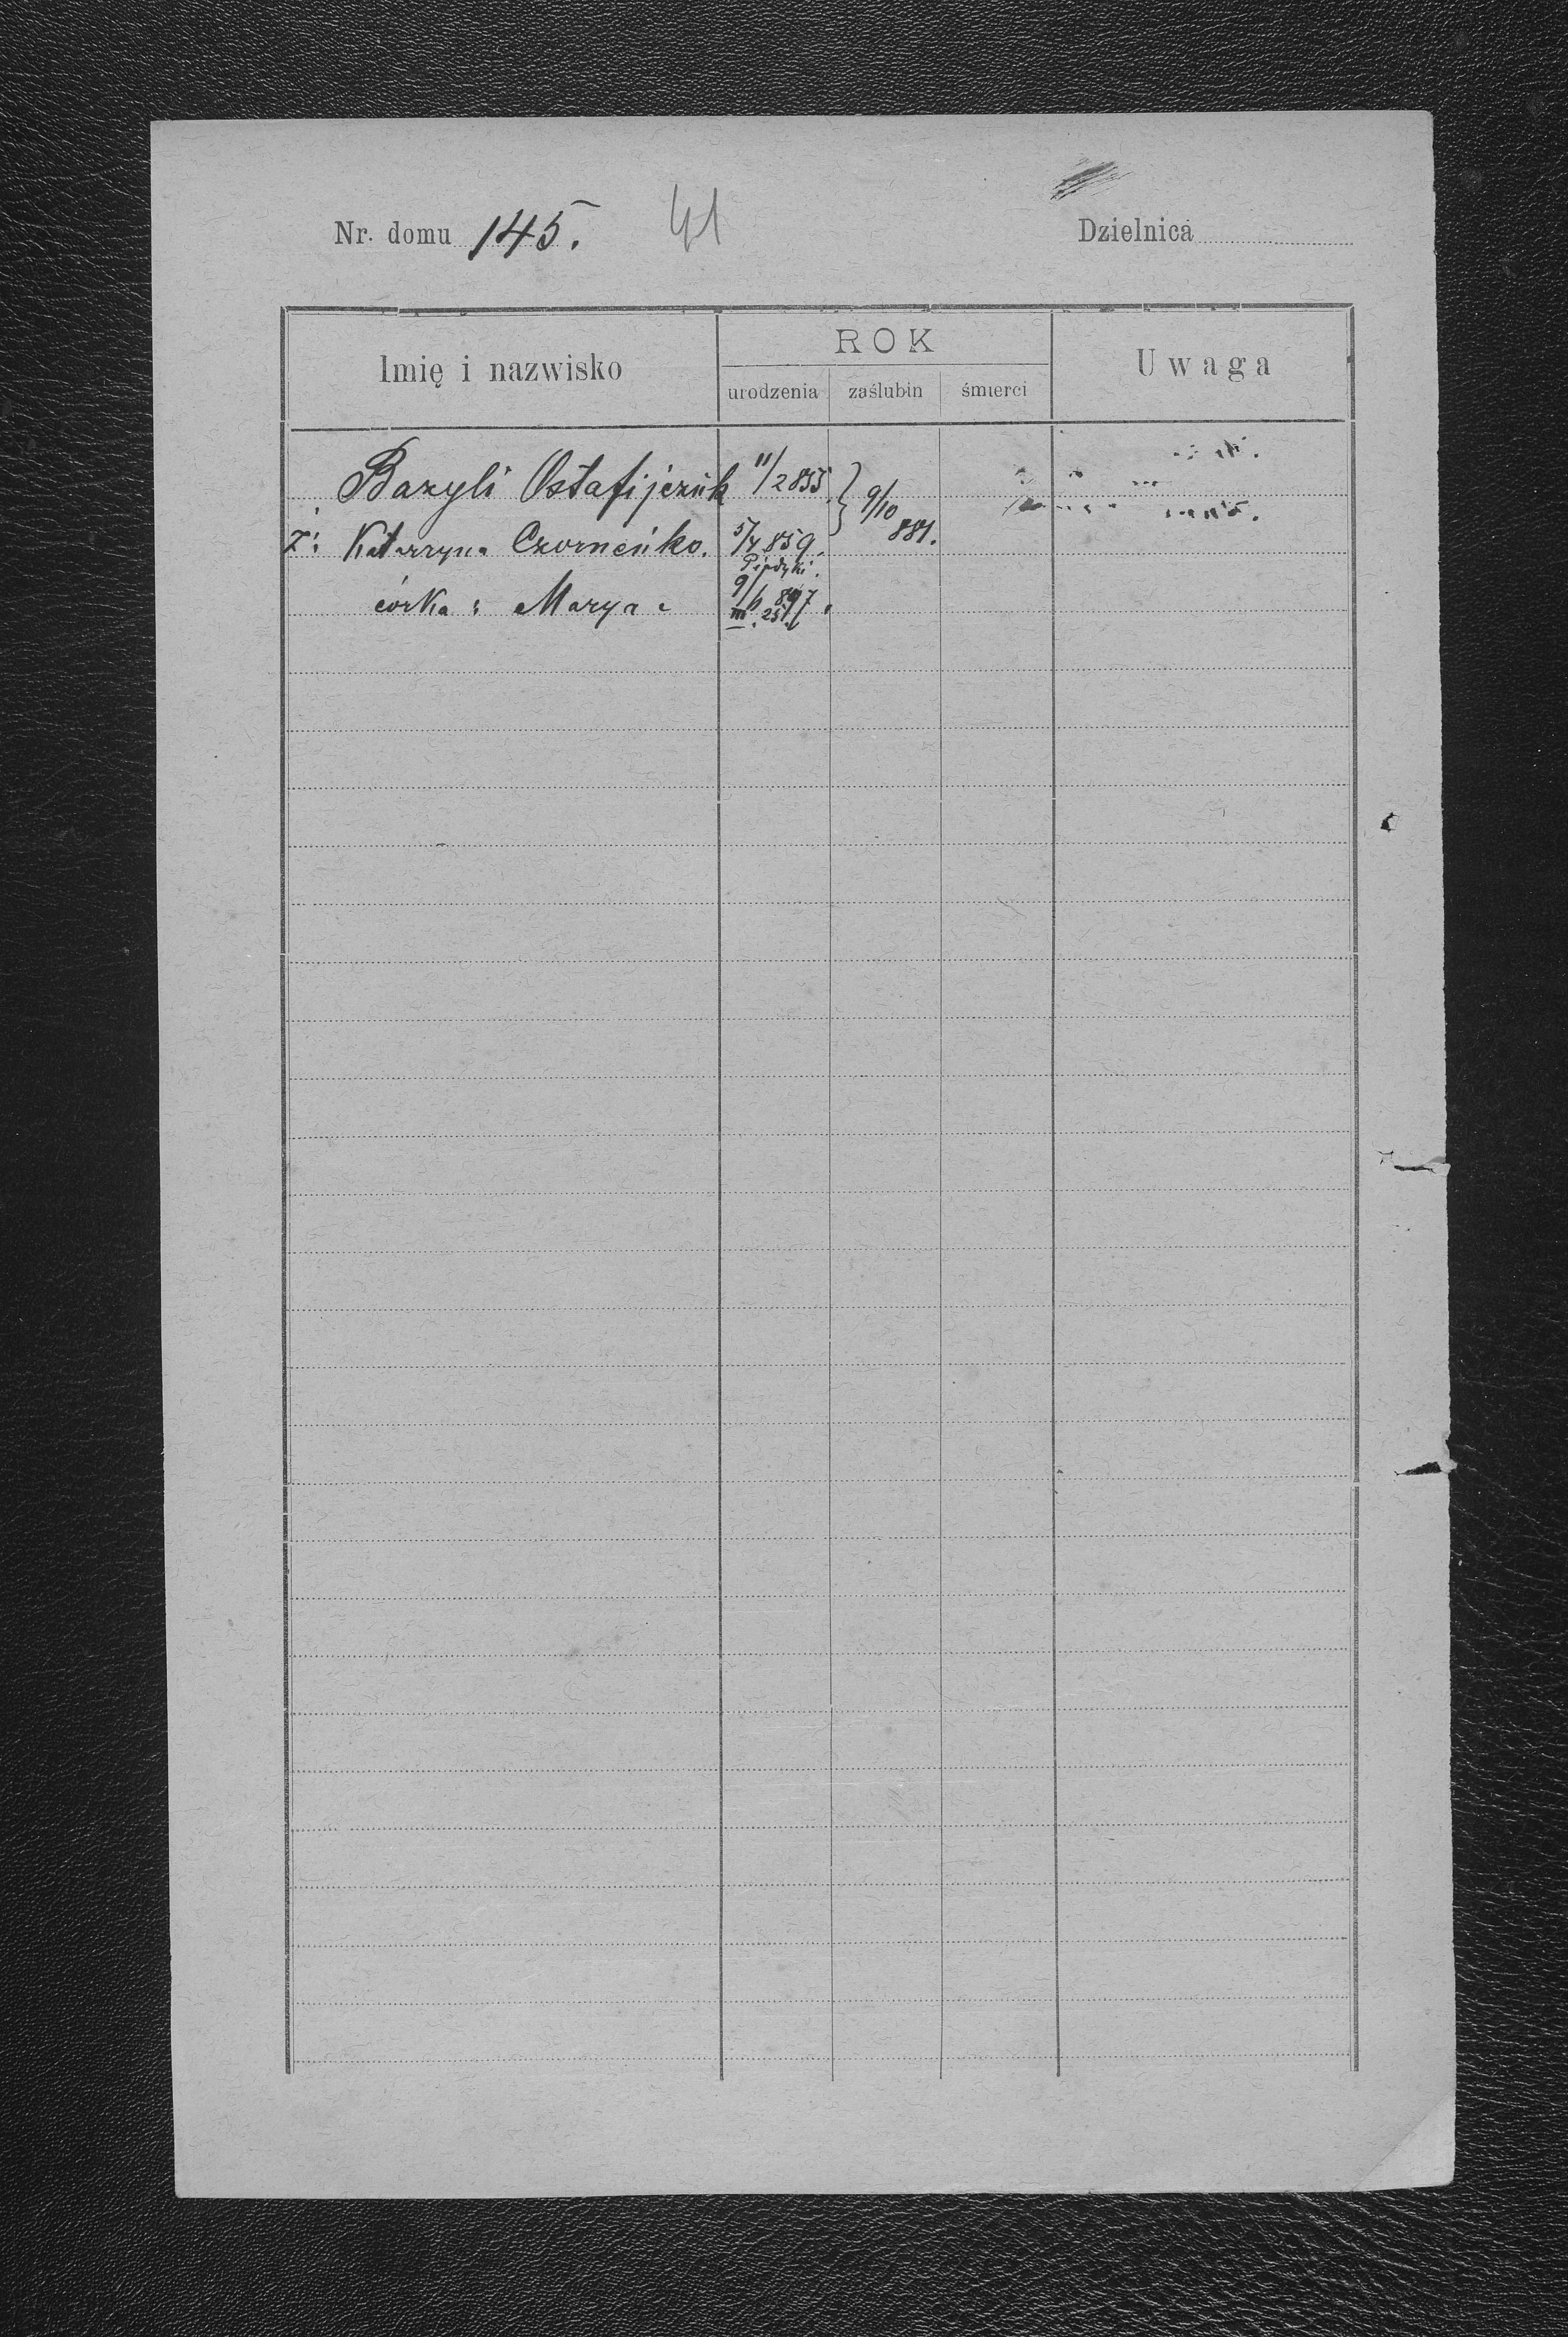 Nr. domu 145. 41 Dzielnica
Imię i nazwisko
ROK
urodzenia zaślubin śmierci
Uwaga
Bazyli Ostafijczuk 11/2 855
9/10 881.
ż: Katarzyna Czorneńko. 5/4 859.
córka : Marya 9/6 897.
III. 25